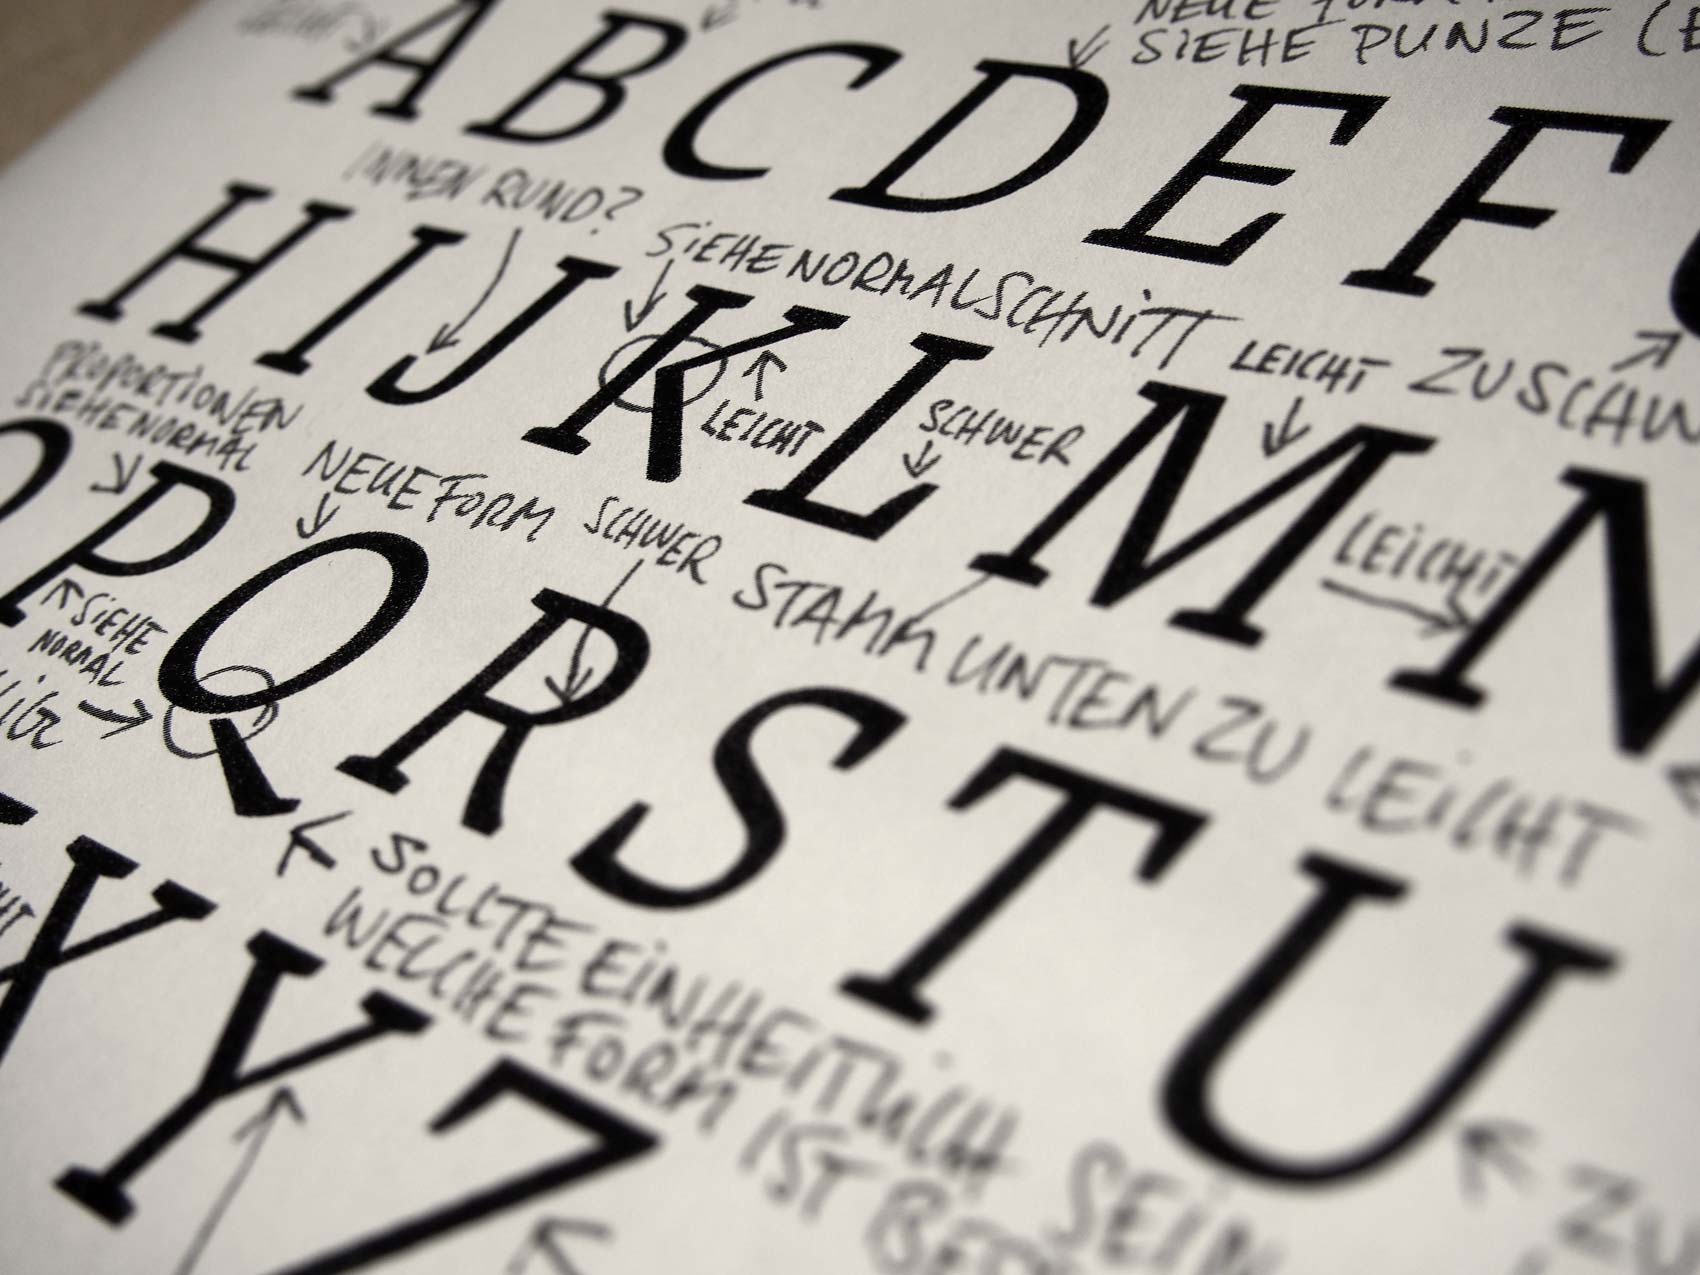 NEUE FORM
SIEHE PUNZE (
A B C D E F
INNEN RUND?
SIEHE NORMALSCHNITT
LEICHT
H I J K L M N
PROPORTIONEN
SIEHE NORMAL
LEICHT
SCHWER
LEICHT
NEUE FORM
SCHWER
STAMM UNTEN ZU LEICHT
P Q R S T U
SIEHE
NORMAL
SOLLTE EINHEITLICH SEIN
WELCHE FORM IST
X Y Z
ZU